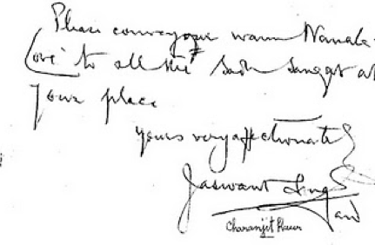 Please convey our warm Namaste
Love to all the Sadh Sangat at
your place
yours very affectionately
Jaswant Singh
and
Charanjit Kaur